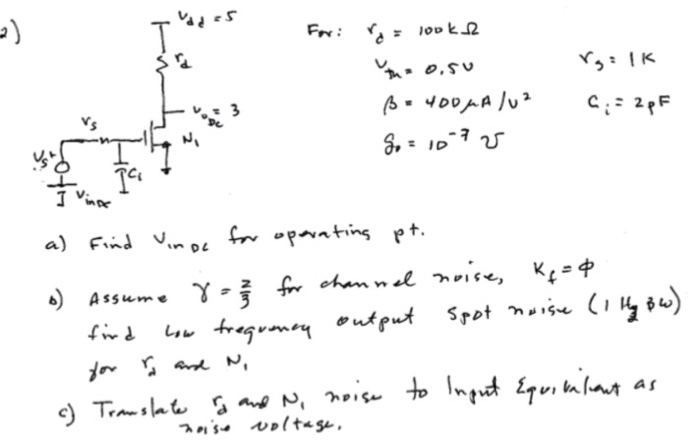 2)
Vdd = 5
rd
VoDC = 3
rs
N1
Vs+
Ci
VinDC
For: rd = 100kΩ
Vtn = 0.5V
rs = 1K
β = 400μA/V²
Ci = 2pF
go = 10⁻⁷ ℧
a) Find VinDC for operating pt.
b) Assume γ = 2/3 for channel noise, Kf = φ
find Low frequency output spot noise (1 Hz BW)
for rd and N1
c) Translate rd and N1 noise to Input Equivalent as
noise voltage.